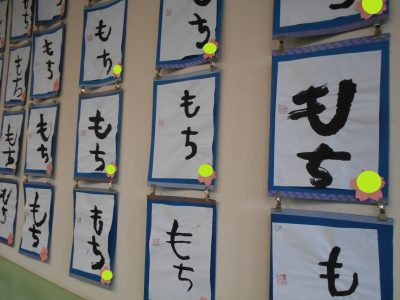 もち
もち
もち
ち
もち
もち
もち
もち
もち
もち
ち
もち
もち
もち
も